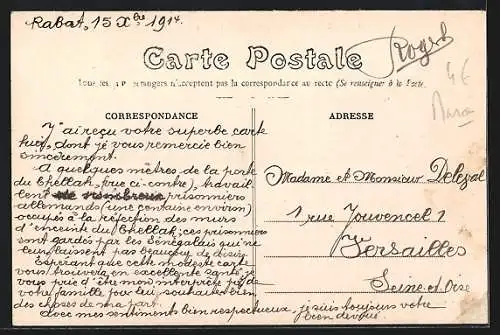 Rabat, 15 Xbre 1914
Roger
Carte Postale
Tous les étrangers n'acceptent pas la correspondance au recto (Se renseigner à la Poste)
4€
Maroc
CORRESPONDANCE
ADRESSE
J'ai reçu votre superbe carte
hier, dont je vous remercie bien
sincèrement.
A quelques mètres de la porte
du Chellah (vue ci-contre), travail
lent de nombreux prisonniers
allemands (une centaine environ)
occupés à la réfection des murs
d'enceinte du Chellah; ces prisonniers
sont gardés par les Sénégalais qui ne
leur laissent pas beaucoup de
Espérant que cette modeste carte
vous trouvera en excellente santé, je
vous prie d'être mon interprète près de
votre famille pour lui souhaiter bien
des choses de ma part.
avec mes sentiments bien respectueux, je suis toujours votre
bien dévoué.
Madame et Monsieur Delezal
1 rue Jouvencel 1
Versailles
Seine et Oise